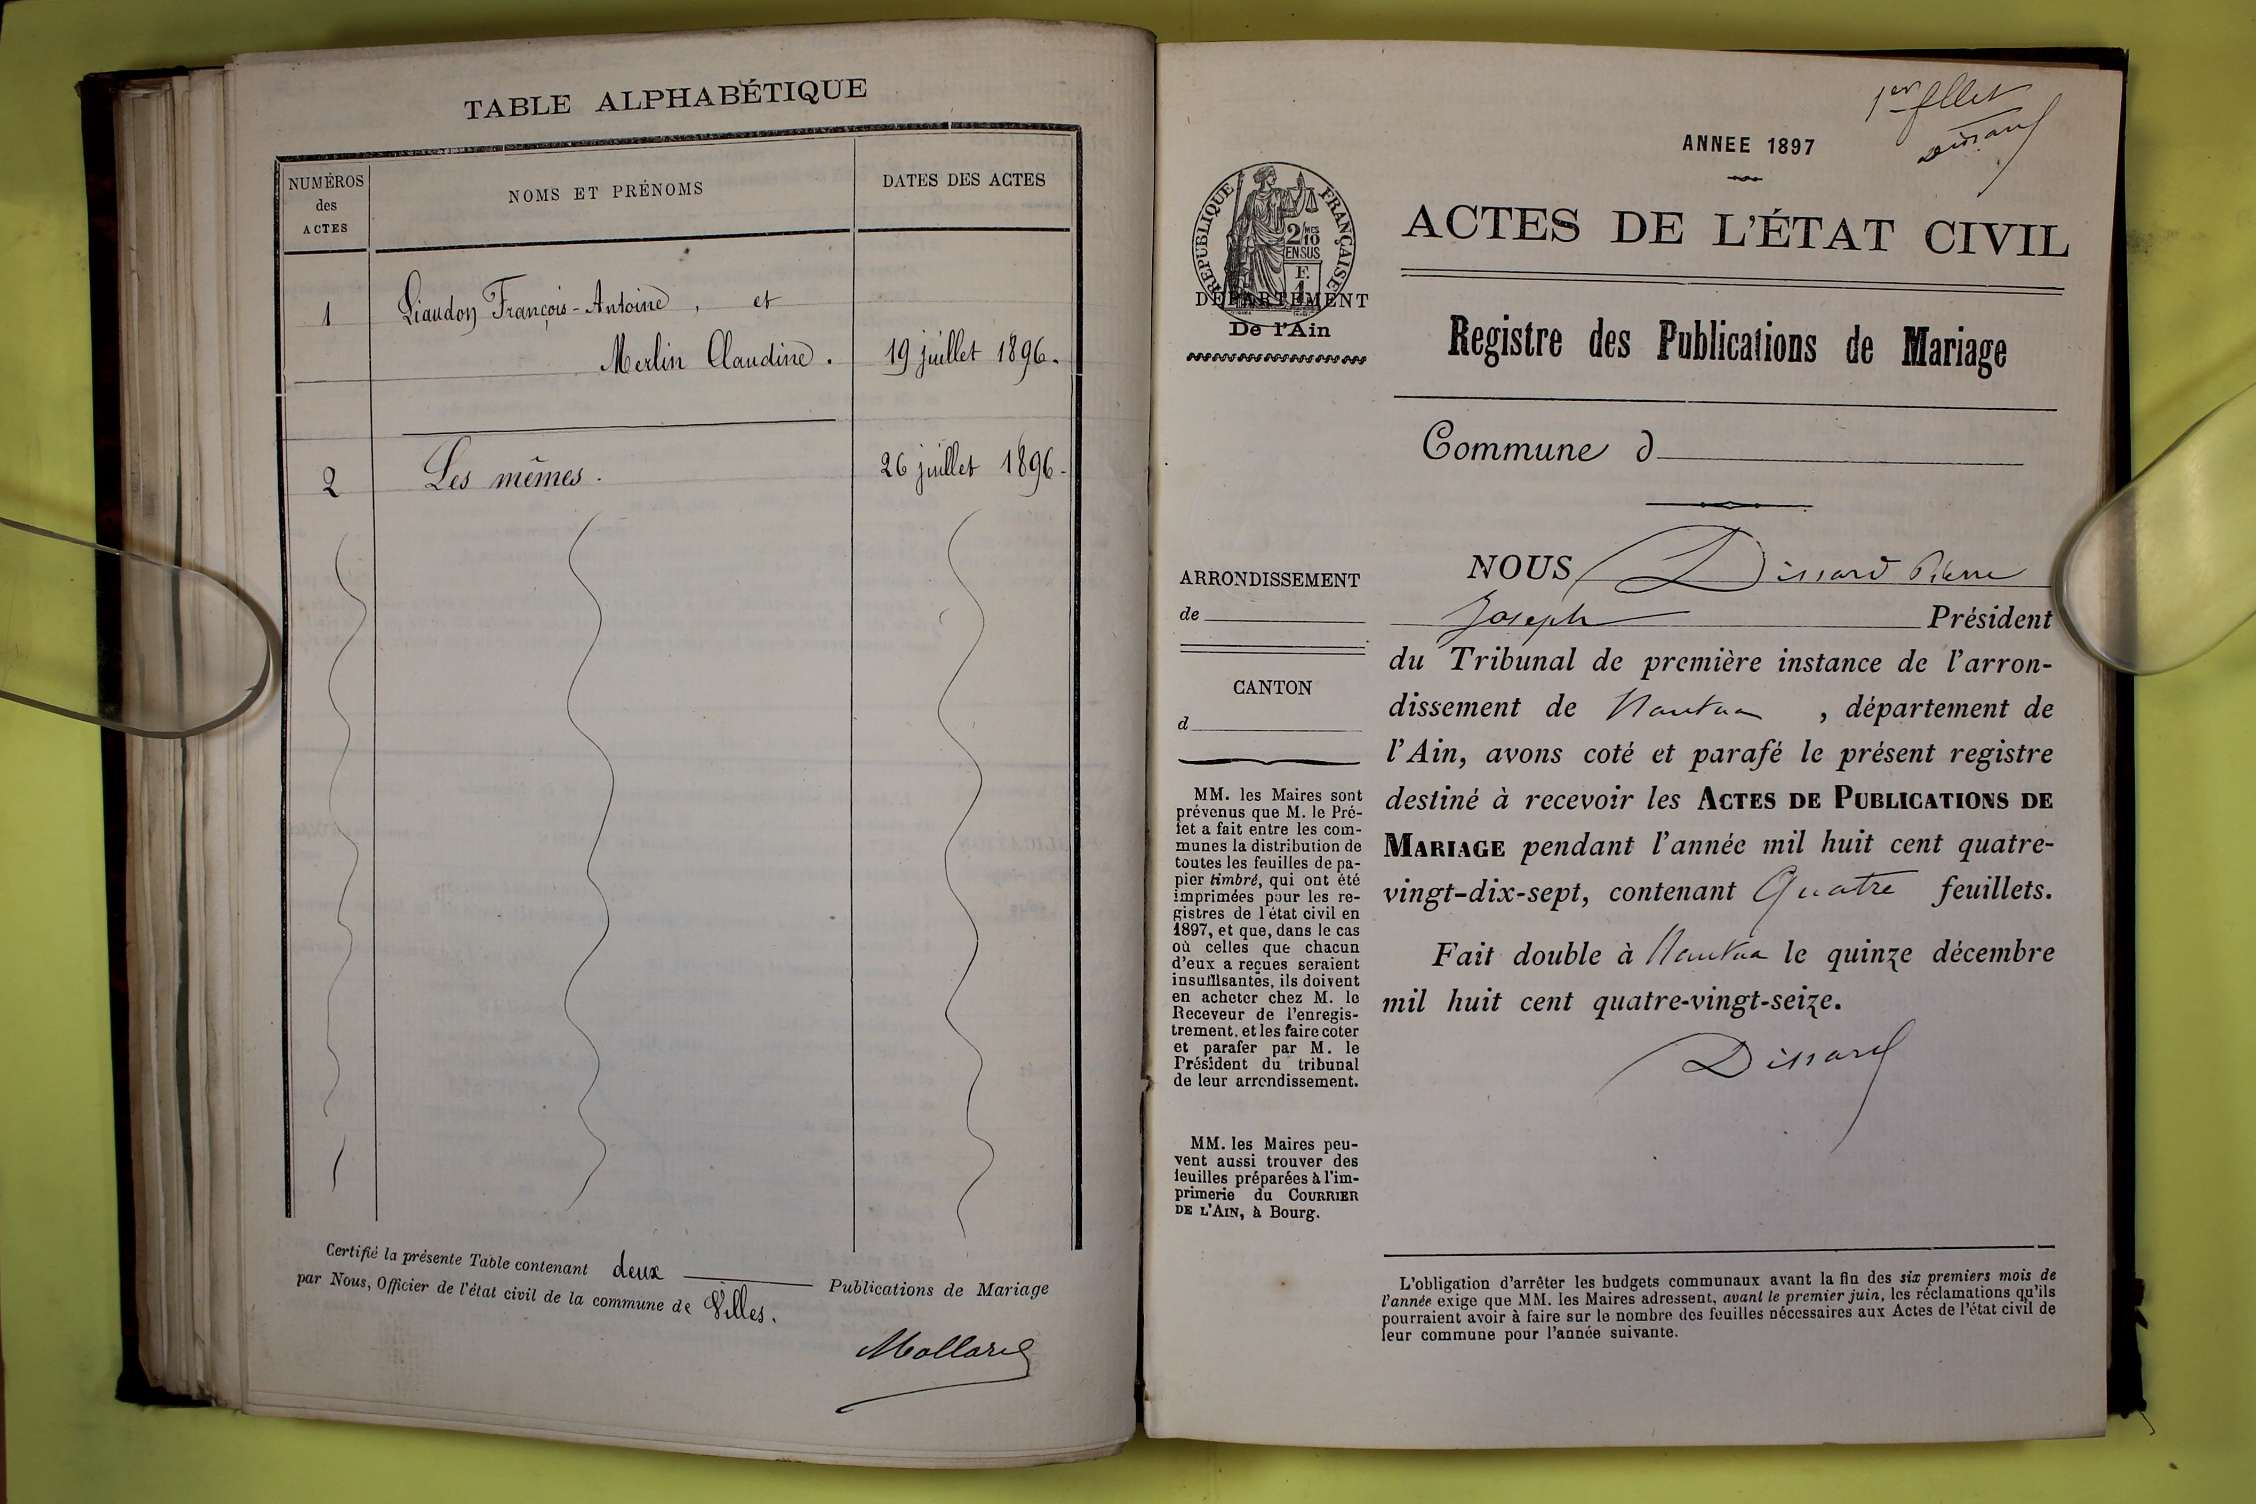 TABLE ALPHABÉTIQUE
NUMÉROS
des
ACTES
NOMS ET PRÉNOMS
DATES DES ACTES
1
Liaudon François-Antoine, et
Merlin Claudine.
19 juillet 1896.
2
Les mêmes.
26 juillet 1896.
Certifié la présente Table contenant deux Publications de Mariage
par Nous, Officier de l'état civil de la commune de Villes.
Mollard
1er fllet
Dissard
ANNEE 1897
RÉPUBLIQUE FRANÇAISE
2/10 MES
EN SUS
F.
1
ACTES DE L'ÉTAT CIVIL
DÉPARTEMENT
De l'Ain
Registre des Publications de Mariage
Commune d
ARRONDISSEMENT
de
CANTON
d
MM. les Maires sont
prévenus que M. le Pré-
fet a fait entre les com-
munes la distribution de
toutes les feuilles de pa-
pier timbré, qui ont été
imprimées pour les re-
gistres de l'état civil en
1897, et que, dans le cas
où celles que chacun
d'eux a reçues seraient
insuffisantes, ils doivent
en acheter chez M. le
Receveur de l'enregis-
trement, et les faire coter
et parafer par M. le
Président du tribunal
de leur arrondissement.
MM. les Maires peu-
vent aussi trouver des
feuilles préparées à l'im-
primerie du COURRIER
DE L'AIN, à Bourg.
NOUS Dissard Pierre
Joseph Président
du Tribunal de première instance de l'arron-
dissement de Nantua, département de
l'Ain, avons coté et parafé le présent registre
destiné à recevoir les ACTES DE PUBLICATIONS DE
MARIAGE pendant l'année mil huit cent quatre-
vingt-dix-sept, contenant Quatre feuillets.
Fait double à Nantua le quinze décembre
mil huit cent quatre-vingt-seize.
Dissard
L'obligation d'arrêter les budgets communaux avant la fin des six premiers mois de
l'année exige que MM. les Maires adressent, avant le premier juin, les réclamations qu'ils
pourraient avoir à faire sur le nombre des feuilles nécessaires aux Actes de l'état civil de
leur commune pour l'année suivante.